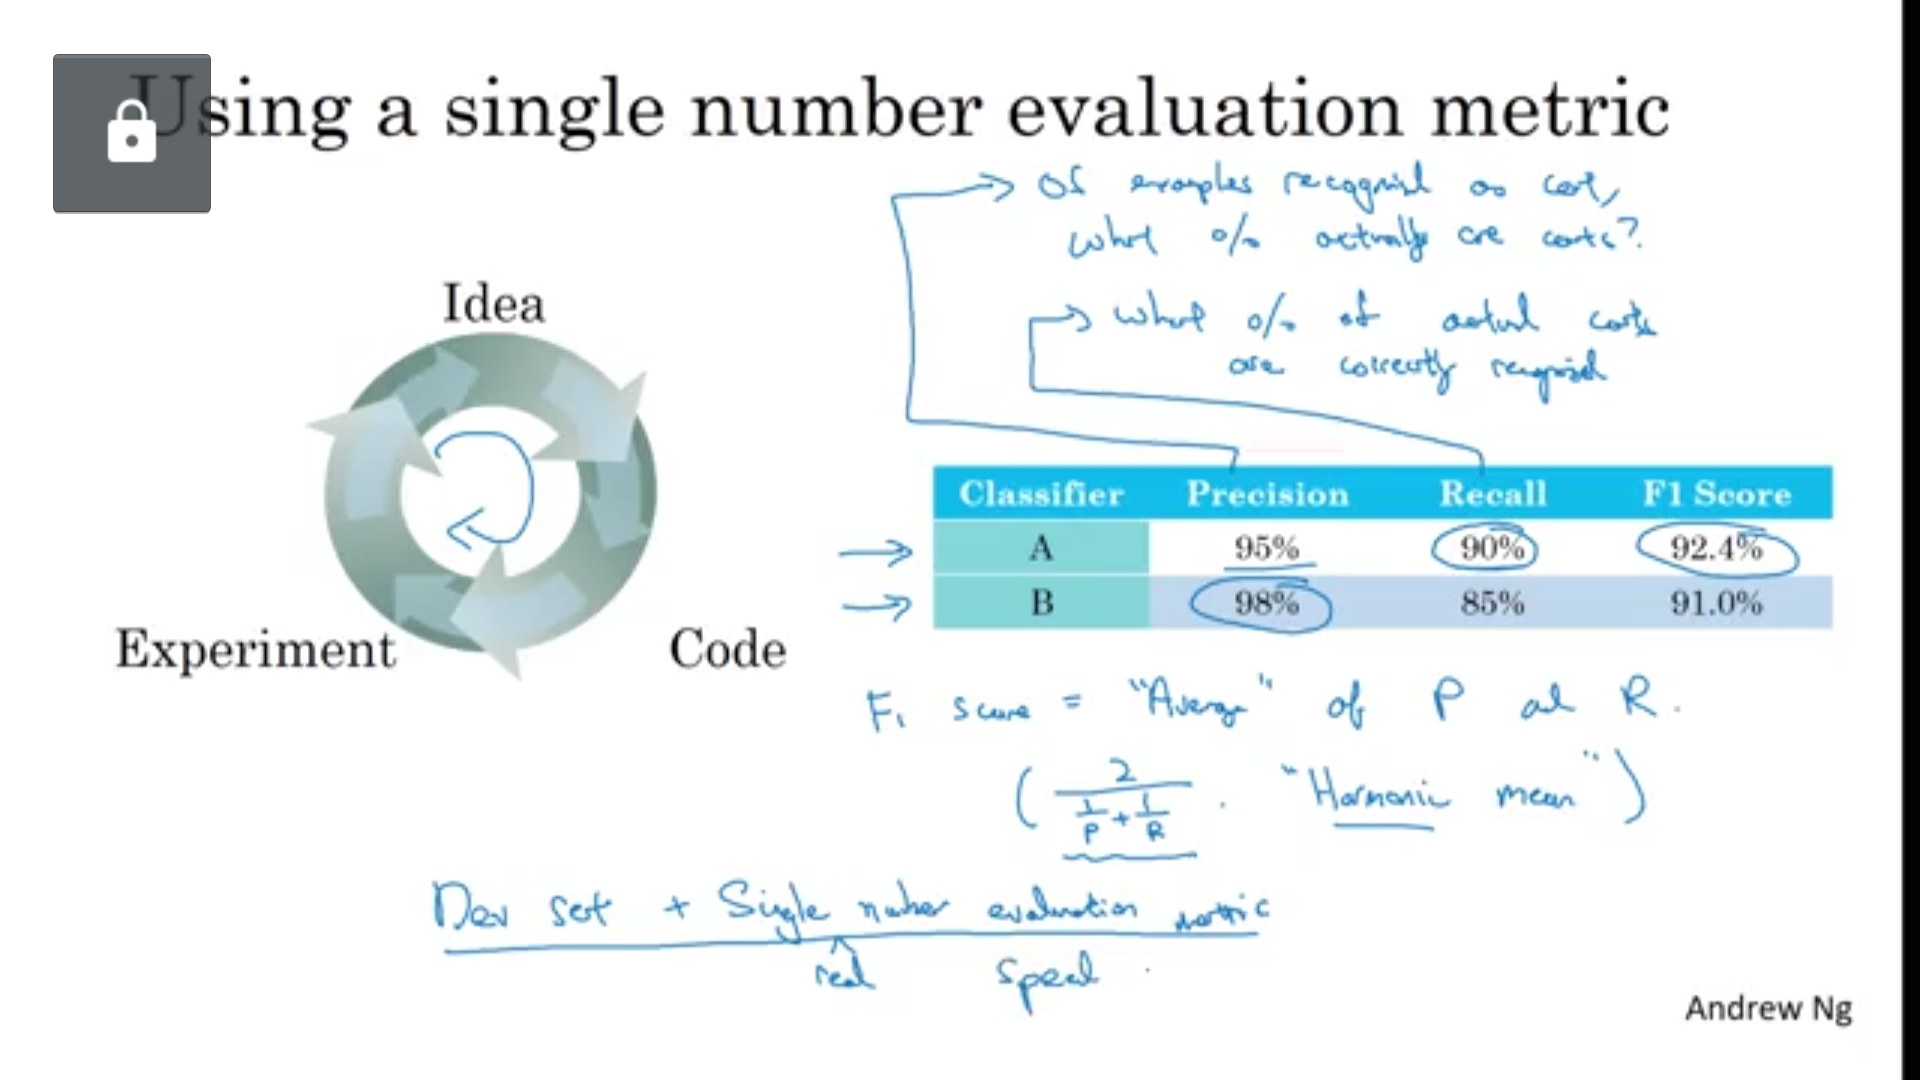 Using a single number evaluation metric
Of examples recognized as cat,
what % actually are cats?
what % of actual cats
are correctly recognized
Idea
Experiment
Code
Classifier Precision Recall F1 Score
A 95% 90% 92.4%
B 98% 85% 91.0%
F1 score = "Average" of P and R.
( 2 / (1/P + 1/R) . "Harmonic mean" )
Dev set + Single number evaluation metric
real speed
Andrew Ng